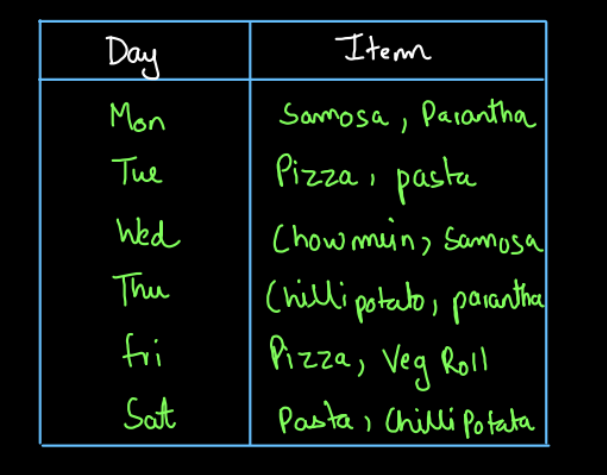 Day Item
Mon Samosa, Parantha
Tue Pizza, pasta
Wed Chowmein, Samosa
Thu Chilli potato, parantha
Fri Pizza, Veg Roll
Sat Pasta, Chilli Potata